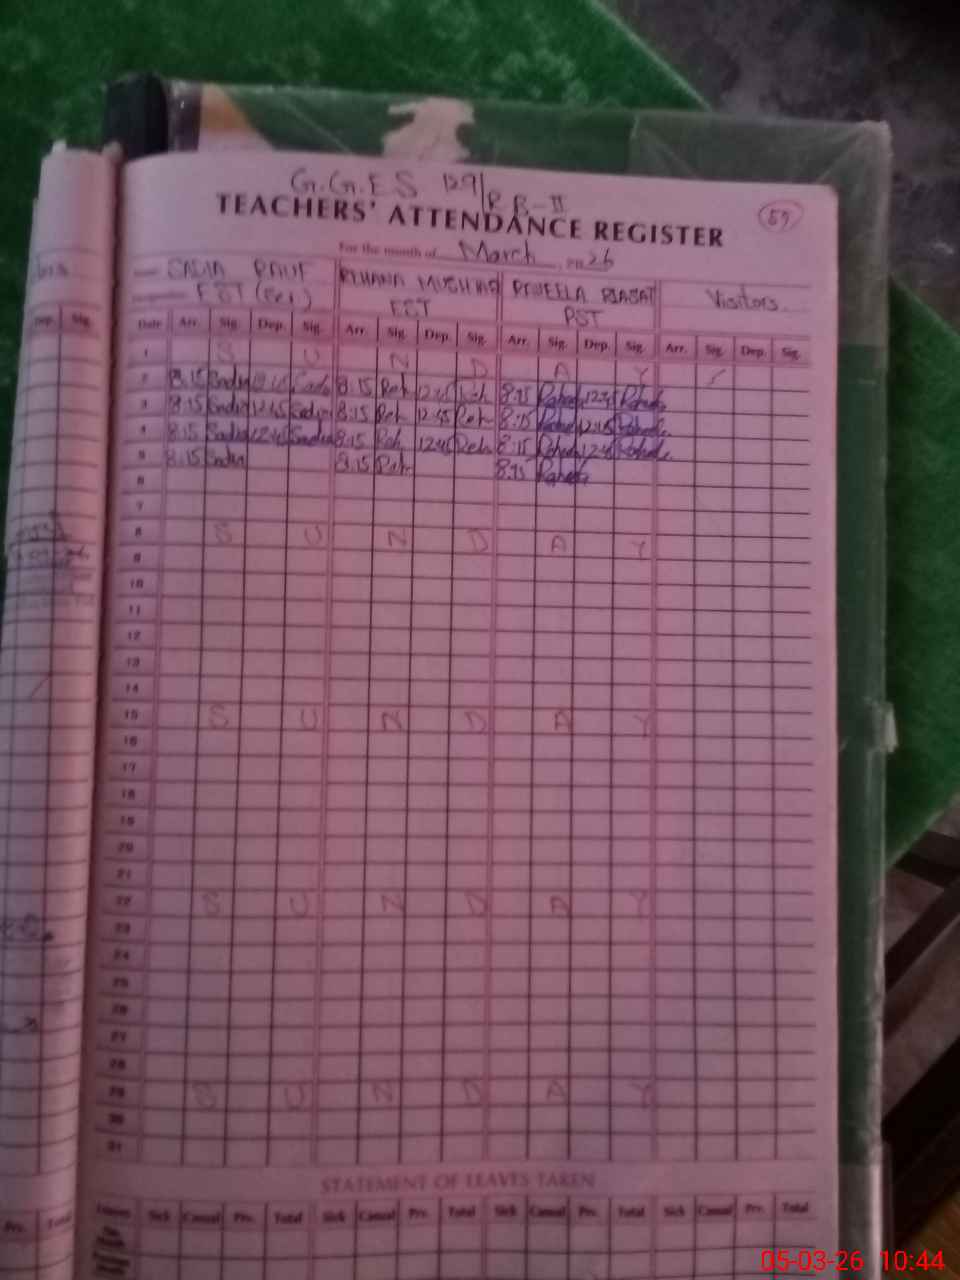 G.G.E.S 129/R.B-II
TEACHERS' ATTENDANCE REGISTER
59
For the month of March 2026
SADIA RAUF REHANA MUSHTAQ RAHEELA RIASAT Visitors.
EST EST PST
Date Arr. Sig. Dep. Sig. Arr. Sig. Dep. Sig. Arr. Sig. Dep. Sig. Arr. Sig. Dep. Sig.
1 S U N D A Y
2 8:15 Sadia 12:45 Sadia 8:15 Reh 12:45 Reh 8:15 Raheela 12:45 Raheela
3 8:15 Sadia 12:45 Sadia 8:15 Reh 12:45 Reh 8:15 Raheela 12:45 Raheela
4 8:15 Sadia 12:45 Sadia 8:15 Reh 12:45 Reh 8:15 Raheela 12:45 Raheela
5 8:15 Sadia 8:15 Reh 8:15 Raheela
6
7
8 S U N D A Y
9
10
11
12
13
14
15 S U N D A Y
16
17
18
19
20
21
22 S U N D A Y
23
24
25
26
27
28
29 S U N D A Y
30
31
STATEMENT OF LEAVES TAKEN
Leaves Sick Casual Prv. Total Sick Casual Prv. Total Sick Casual Prv. Total Sick Casual Prv. Total
Dep. Sig.
Prv. Total
05-03-26 10:44